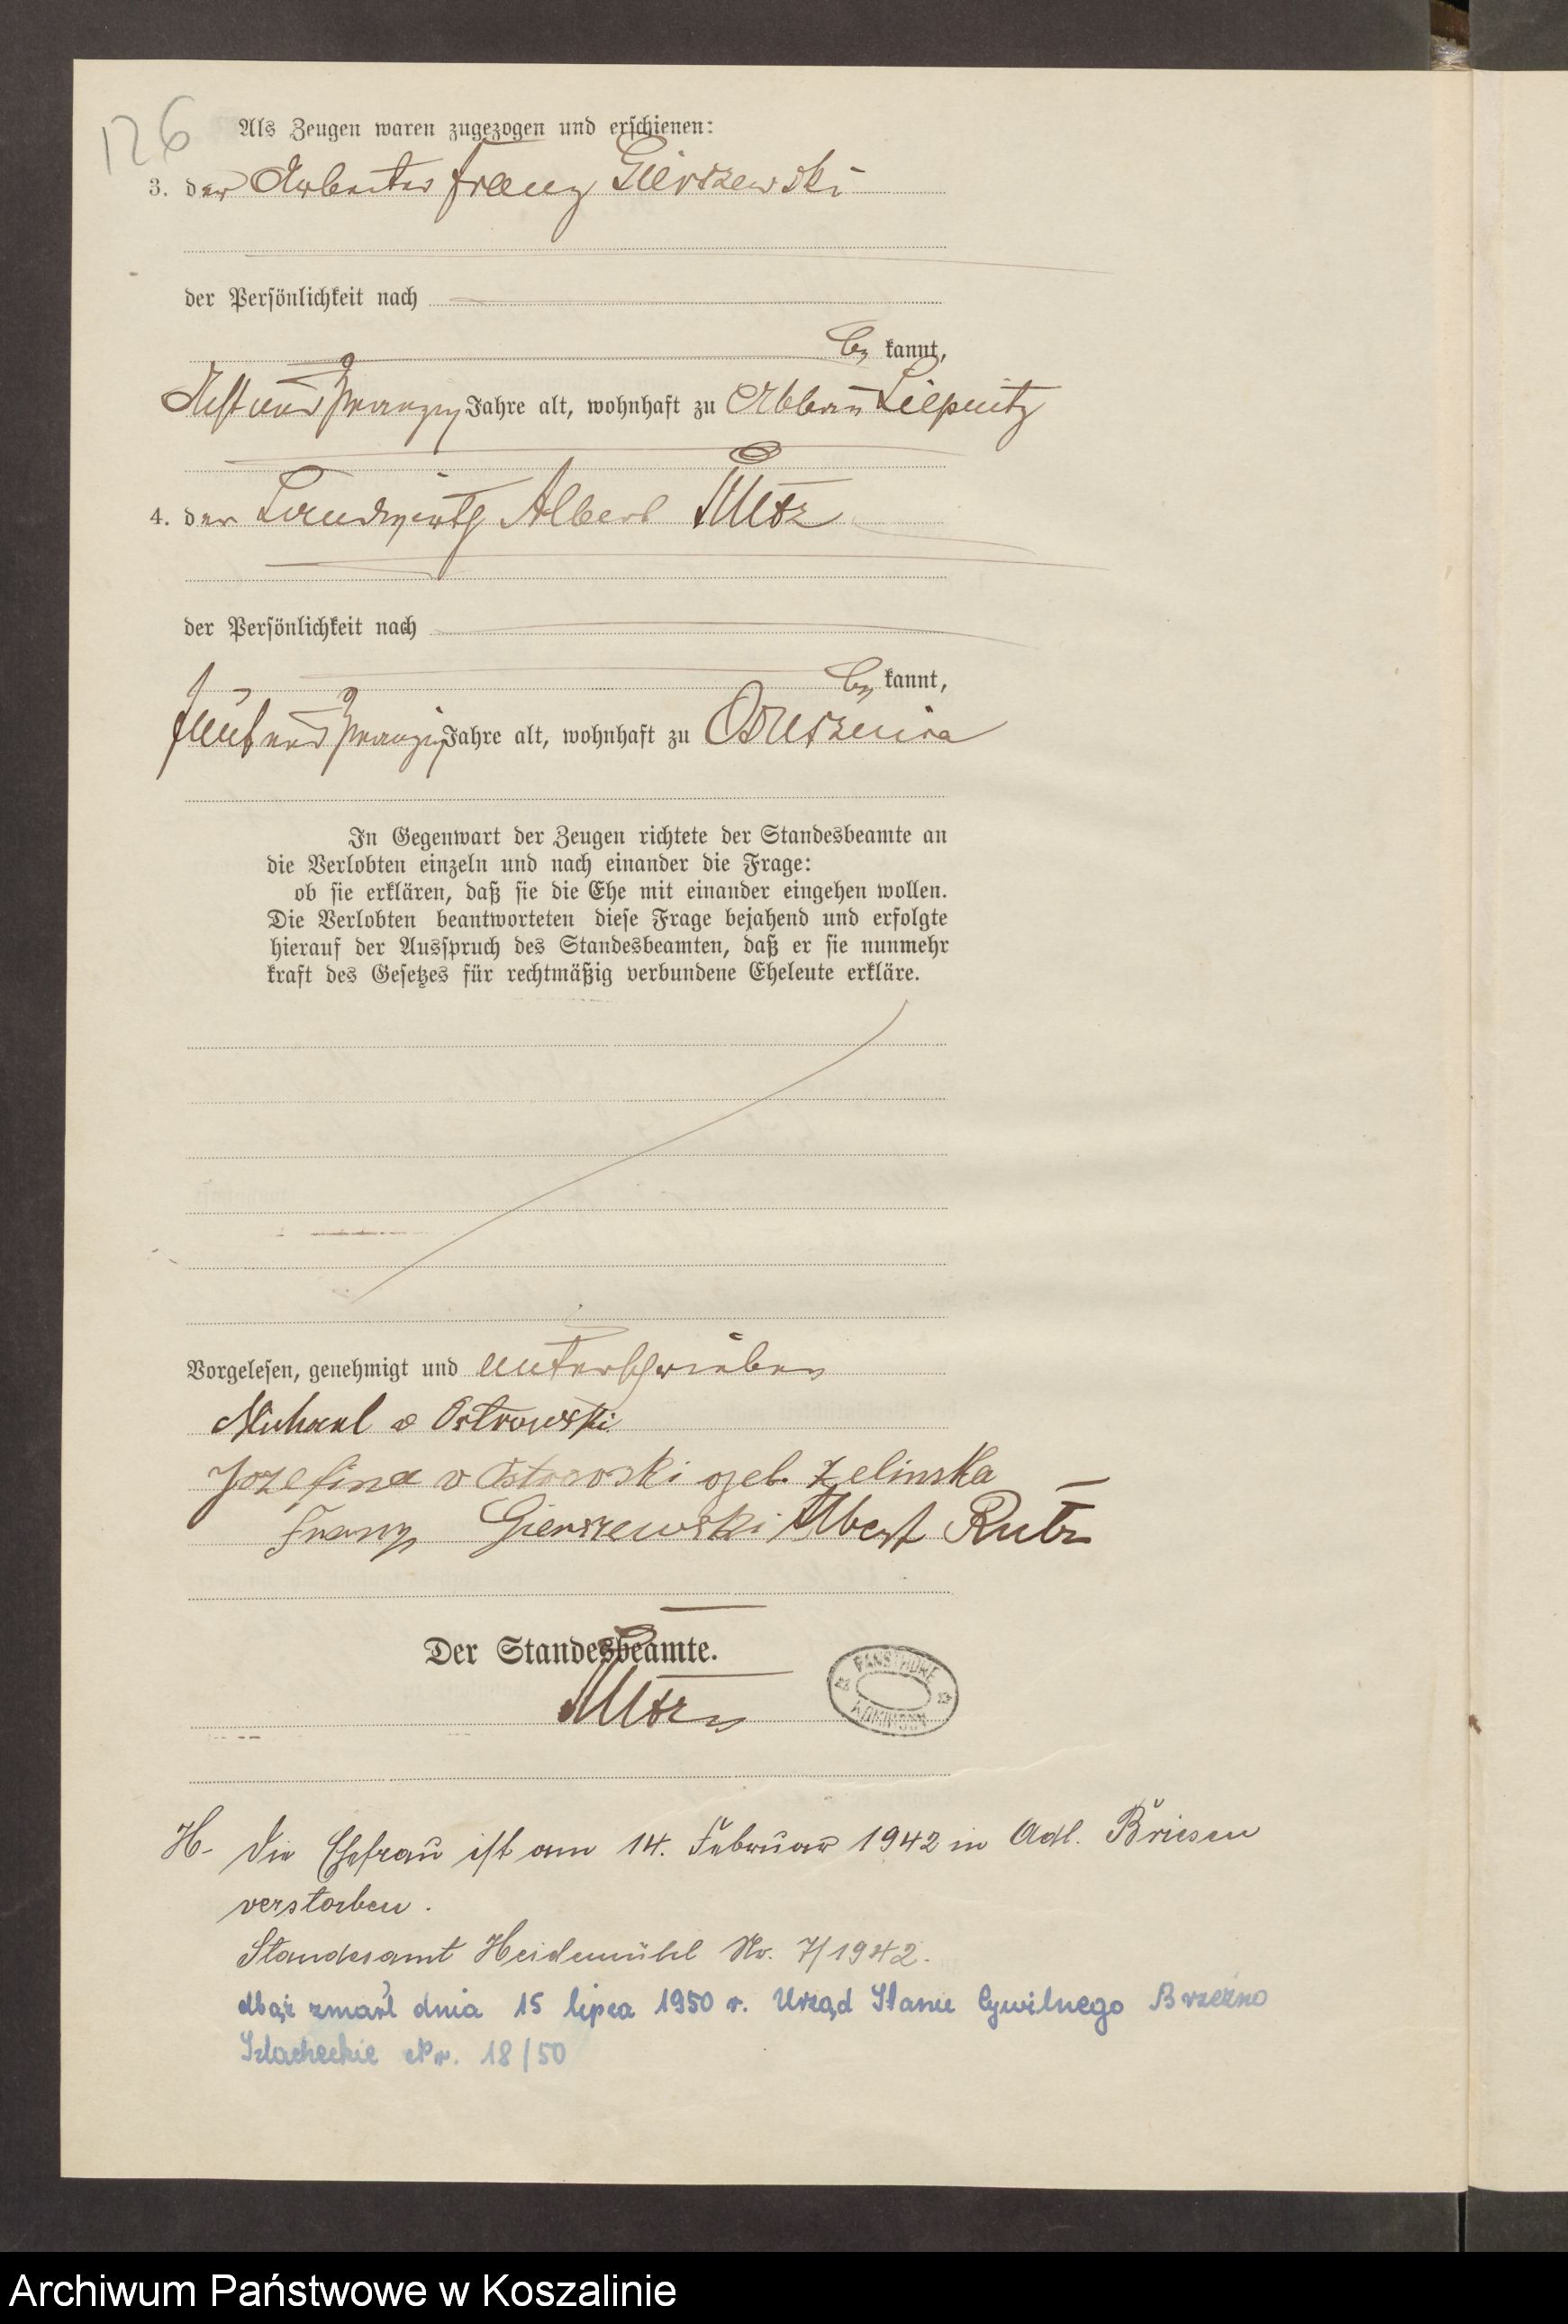 126
Als Zeugen waren zugezogen und erschienen:
3. der Arbeiter Franz Gierszewski
der Persönlichkeit nach
be kannt,
Acht und zwanzig Jahre alt, wohnhaft zu Abbau Liepnitz
4. der Landwirth Albert Rutz
der Persönlichkeit nach
be kannt,
fünf und zwanzig Jahre alt, wohnhaft zu Ossusznica
In Gegenwart der Zeugen richtete der Standesbeamte an
die Verlobten einzeln und nach einander die Frage:
ob sie erklären, daß sie die Ehe mit einander eingehen wollen.
Die Verlobten beantworteten diese Frage bejahend und erfolgte
hierauf der Ausspruch des Standesbeamten, daß er sie nunmehr
kraft des Gesetzes für rechtmäßig verbundene Eheleute erkläre.
Vorgelesen, genehmigt und unterschrieben
Michael v Ostrowski
Jozefina v Ostrowski geb. Zelinska
Franz Gierszewski Albert Rutz
Der Standesbeamte.
Rutz
H- Die Ehefrau ist am 14. Februar 1942 in Adl. Briesen
verstorben.
Standesamt Heidemühl Nr. 7/1942.
Mąż zmarł dnia 15 lipca 1950 r. Urząd Stanu Cywilnego Brzeźno
Szlacheckie Nr. 18/50
Archiwum Państwowe w Koszalinie